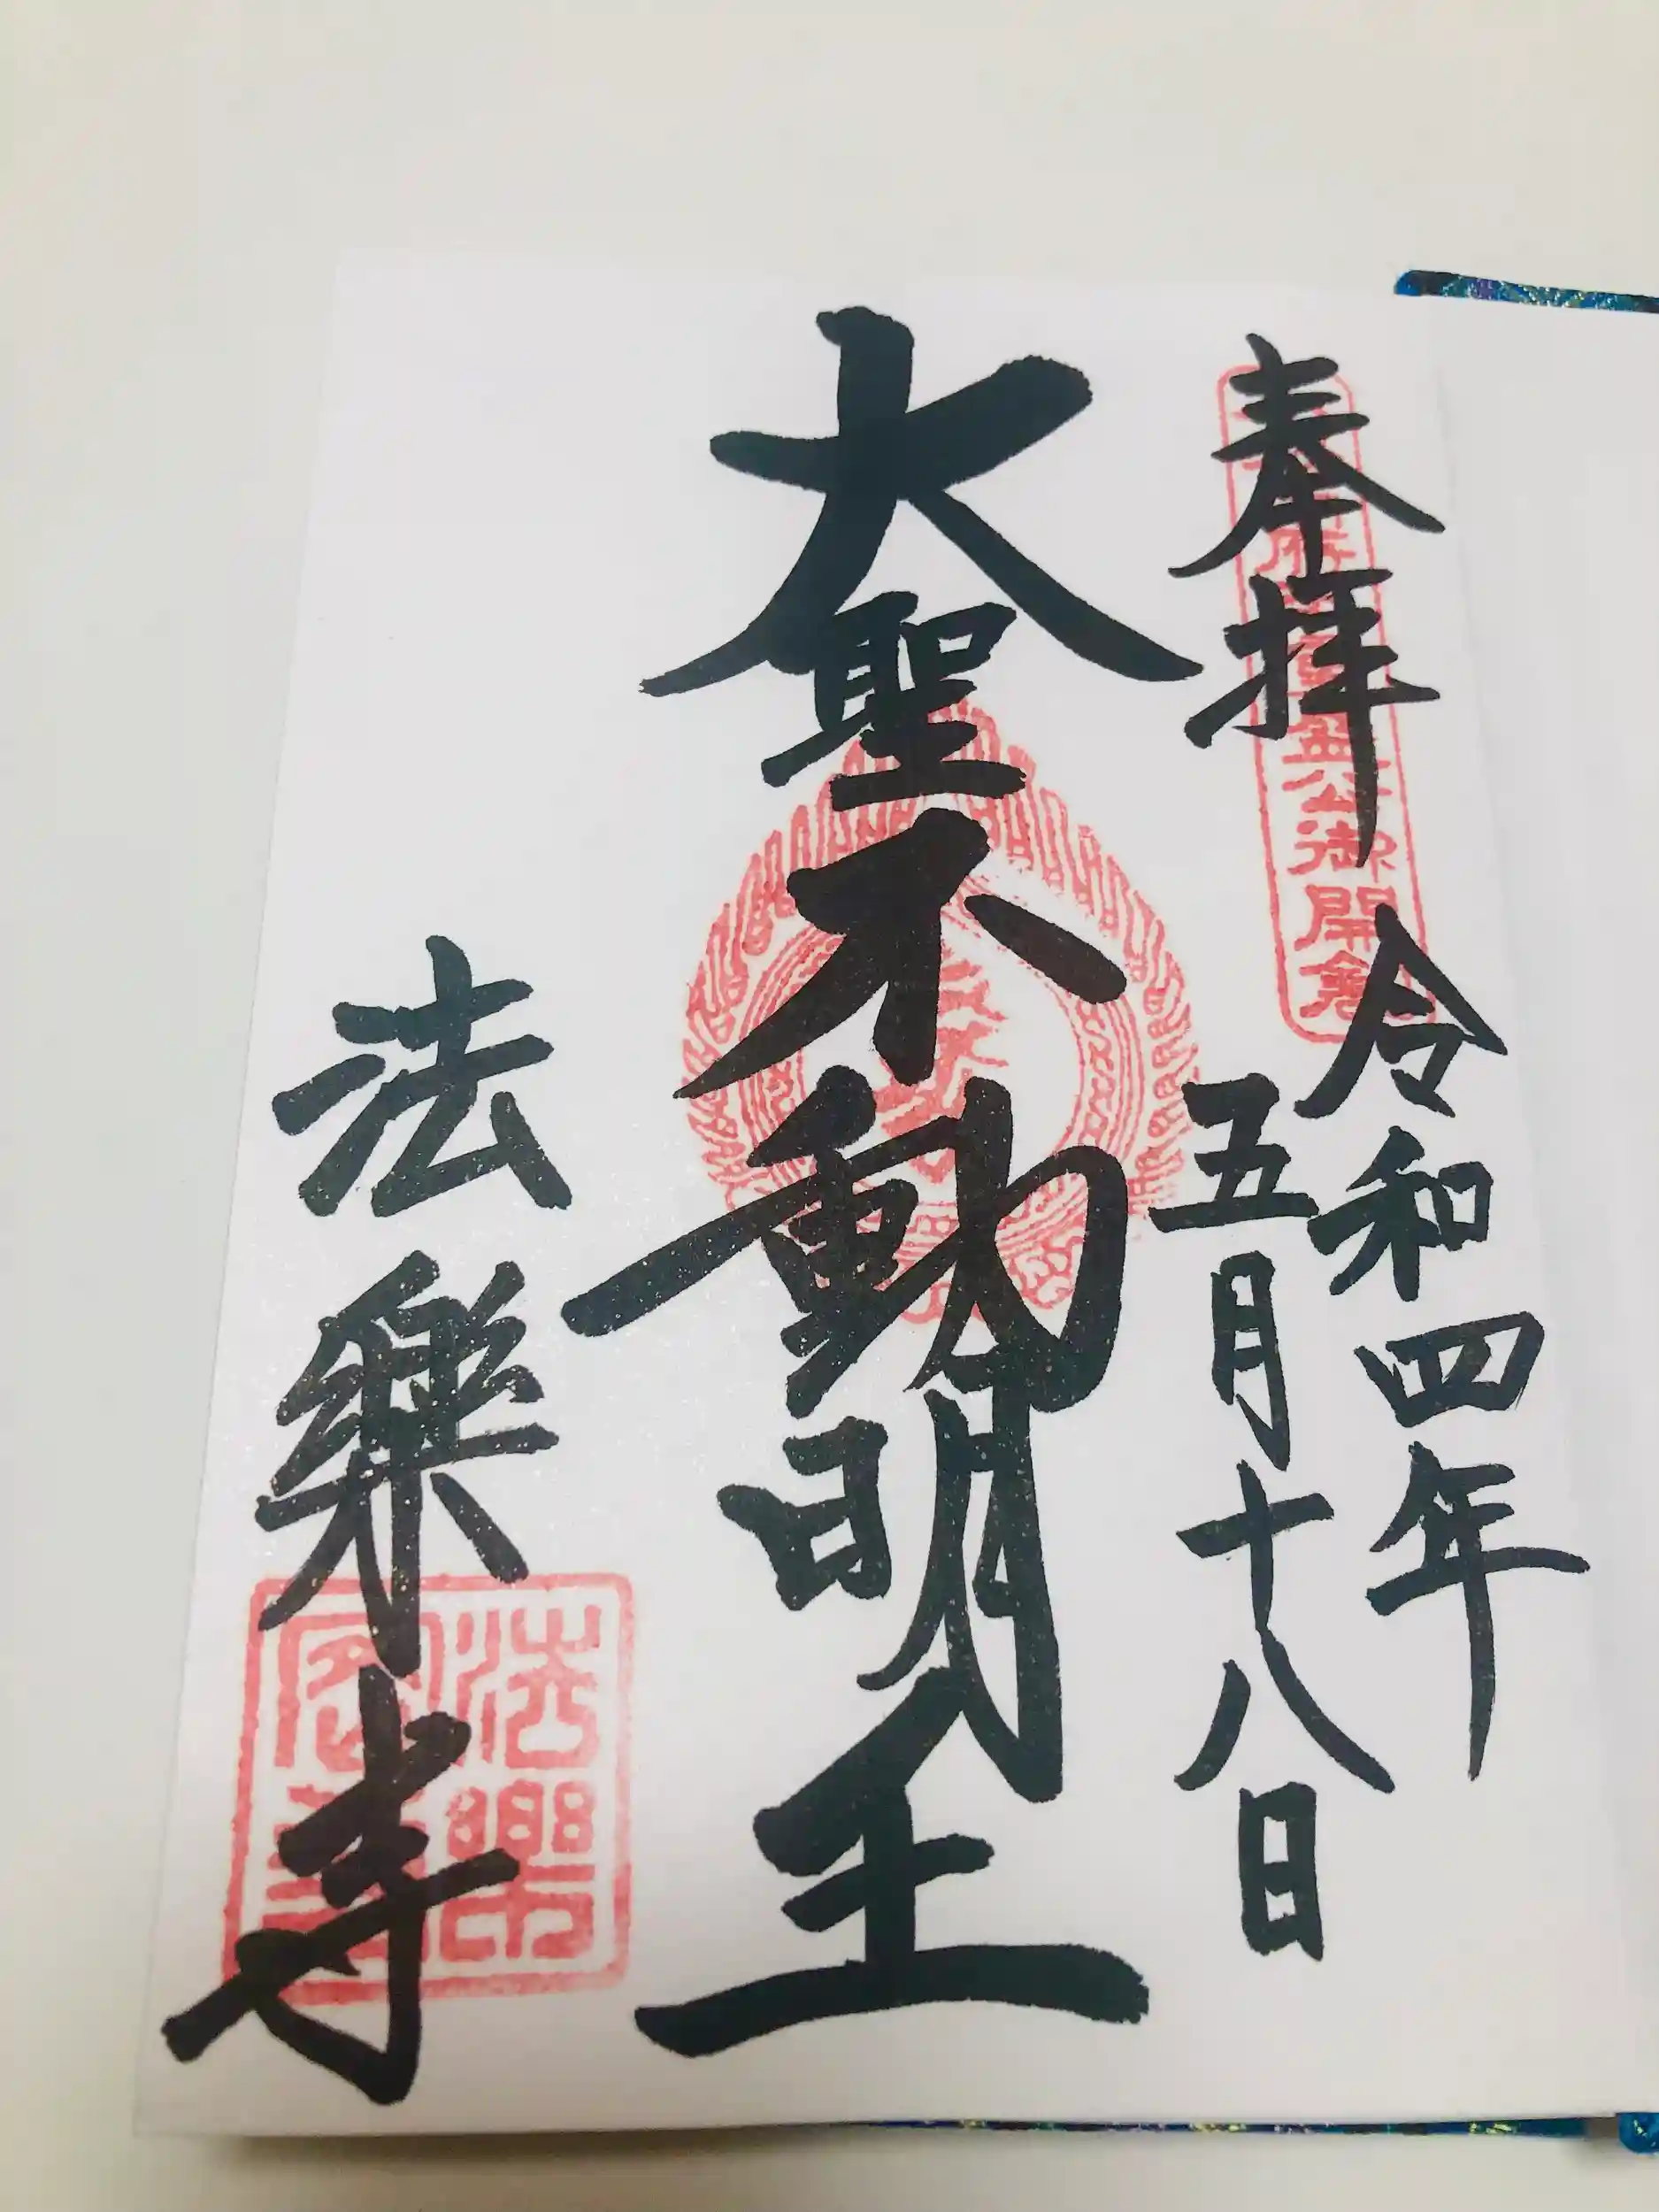 奉拝
令和四年
五月十八日
大聖不動明王
法樂寺
公御開
法樂